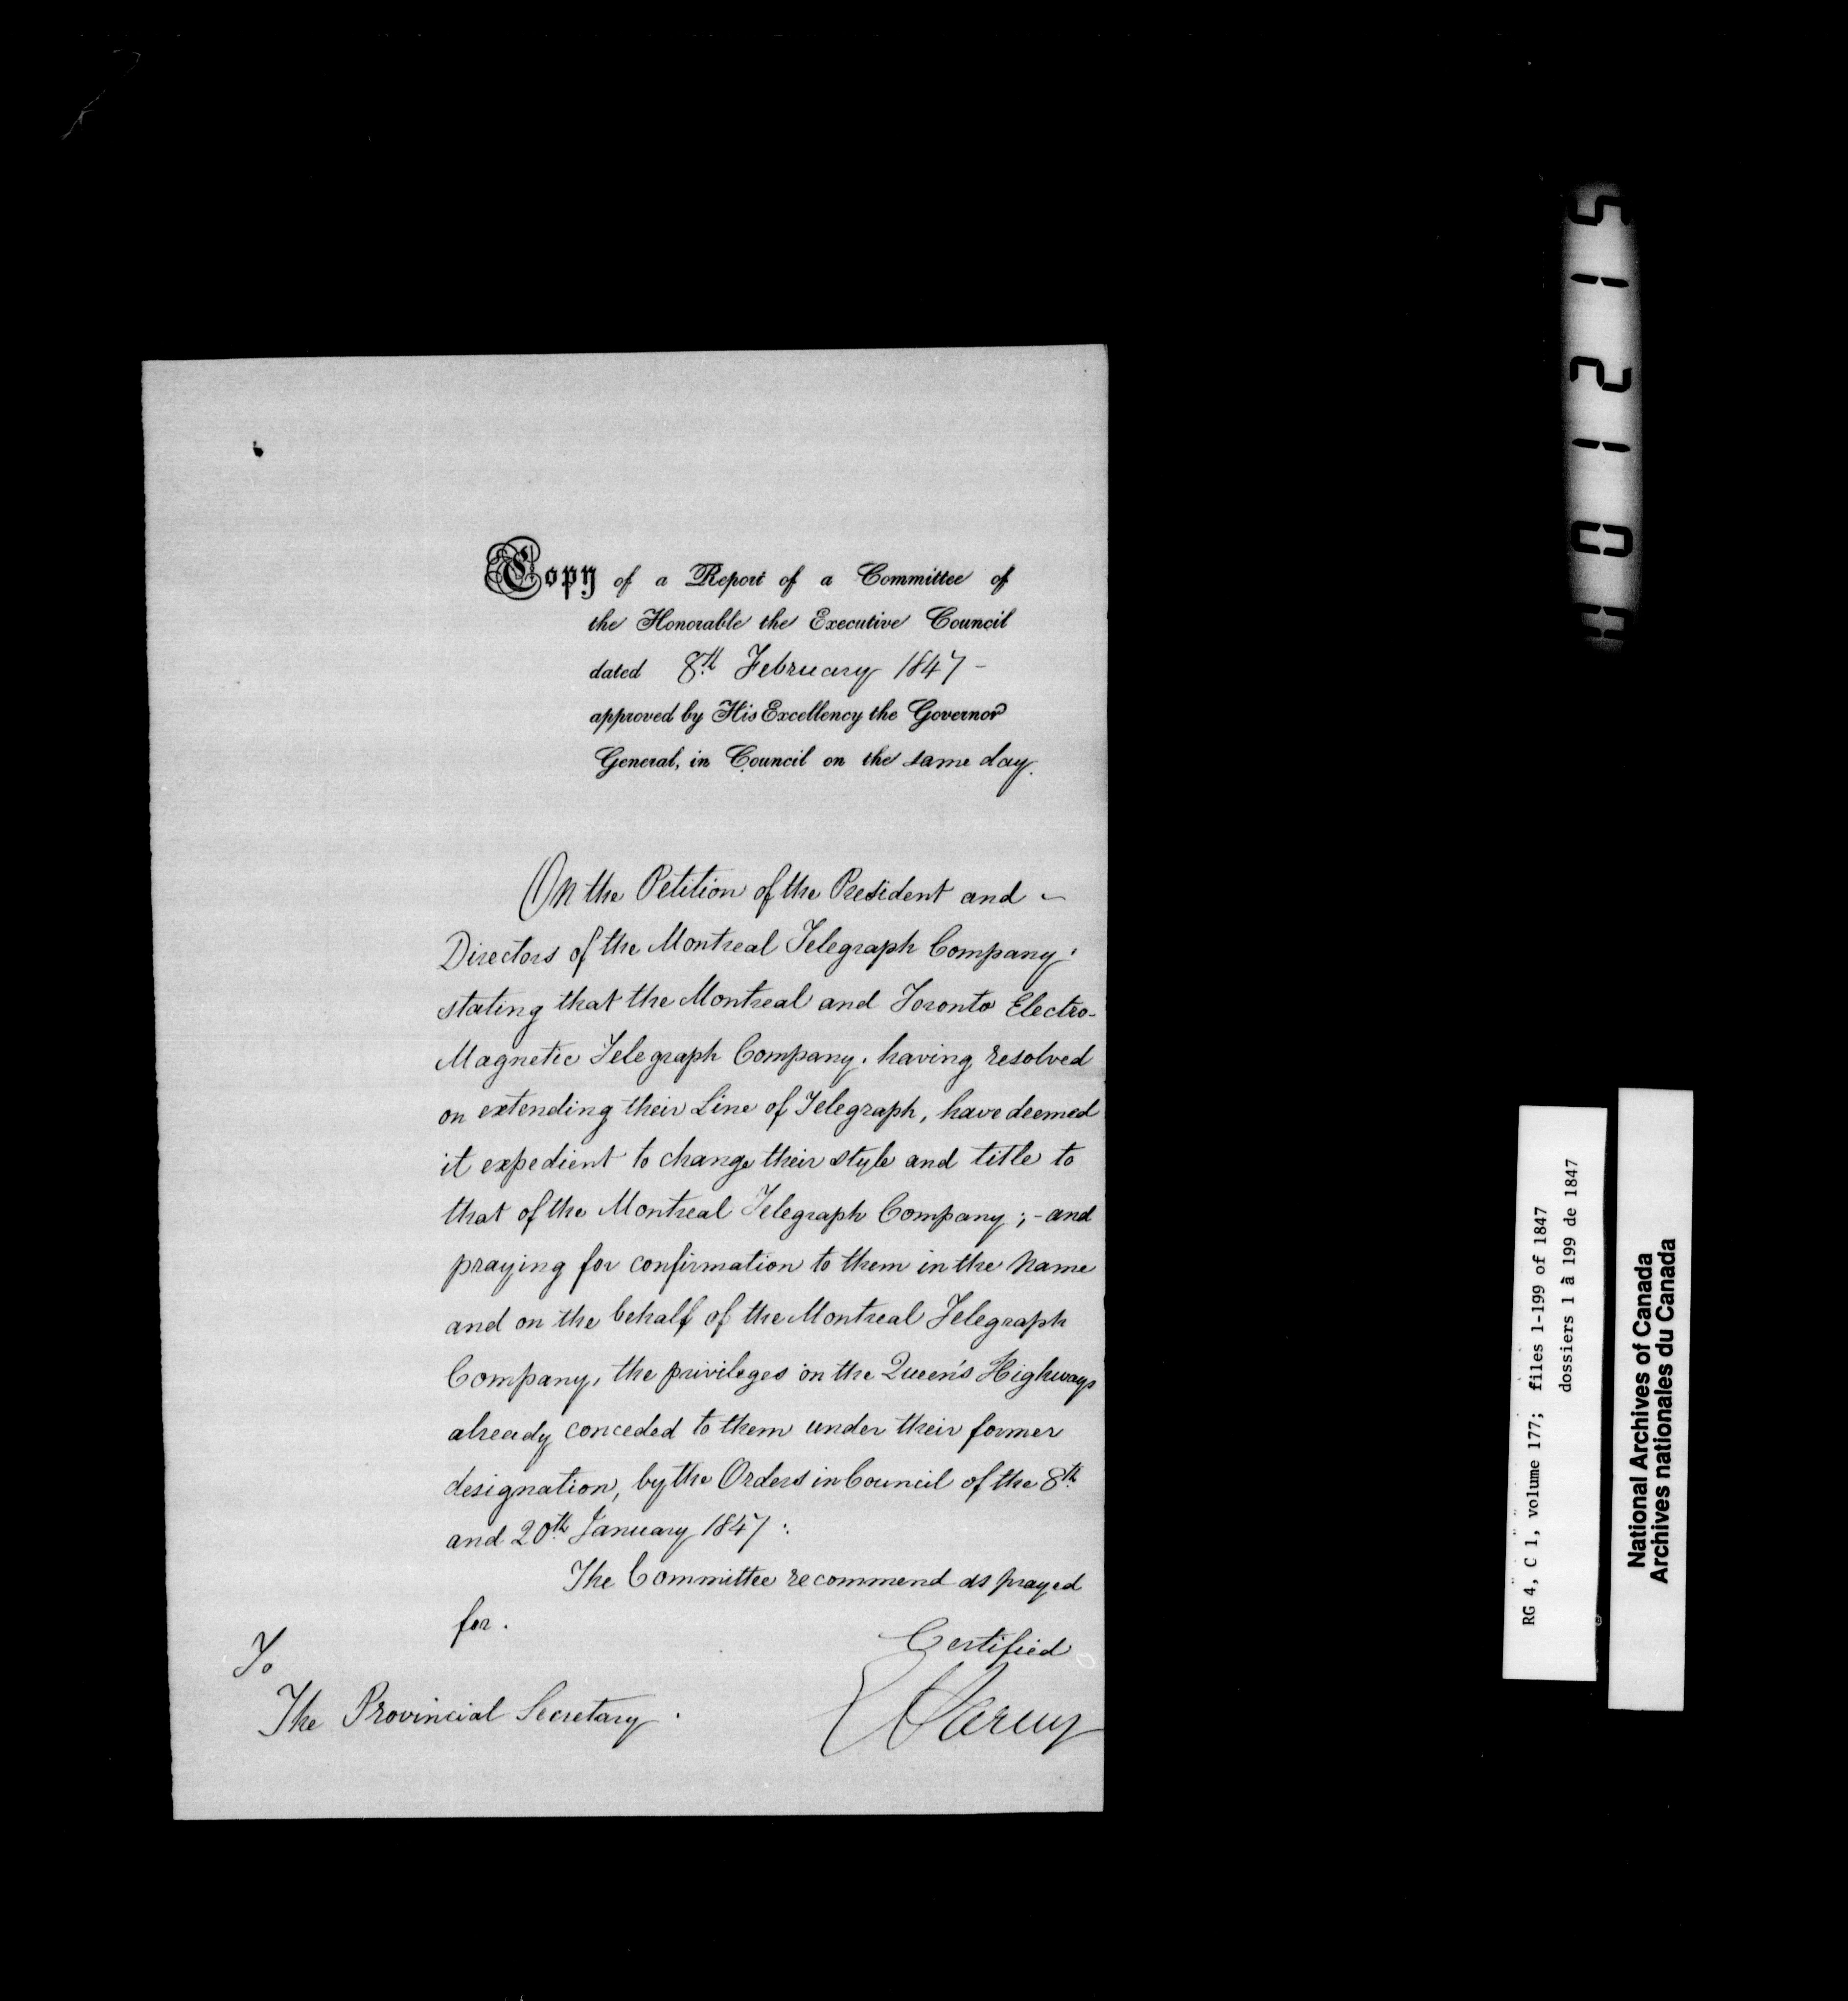 Copy of a Report of a Committee of
the Honorable the Executive Council
dated 8th February 1847 -
approved by His Excellency the Governor
General, in Council on the same day.
On the Petition of the President and
Directors of the Montreal Telegraph Company;
stating that the Montreal and Toronto Electro-
Magnetic Telegraph Company, having resolved
on extending their Line of Telegraph, have deemed
it expedient to change their style and title to
that of the Montreal Telegraph Company; - and
praying for confirmation to them in the name
and on the behalf of the Montreal Telegraph
Company, the privileges on the Queen's Highways
already conceded to them under their former
designation, by the Orders in Council of the 8th
and 20th January 1847:
The Committee recommend as prayed
for.
Certified
To
The Provincial Secretary.
H01215
RG 4, C 1, volume 177; files 1-199 of 1847
dossiers 1 à 199 de 1847
National Archives of Canada
Archives nationales du Canada